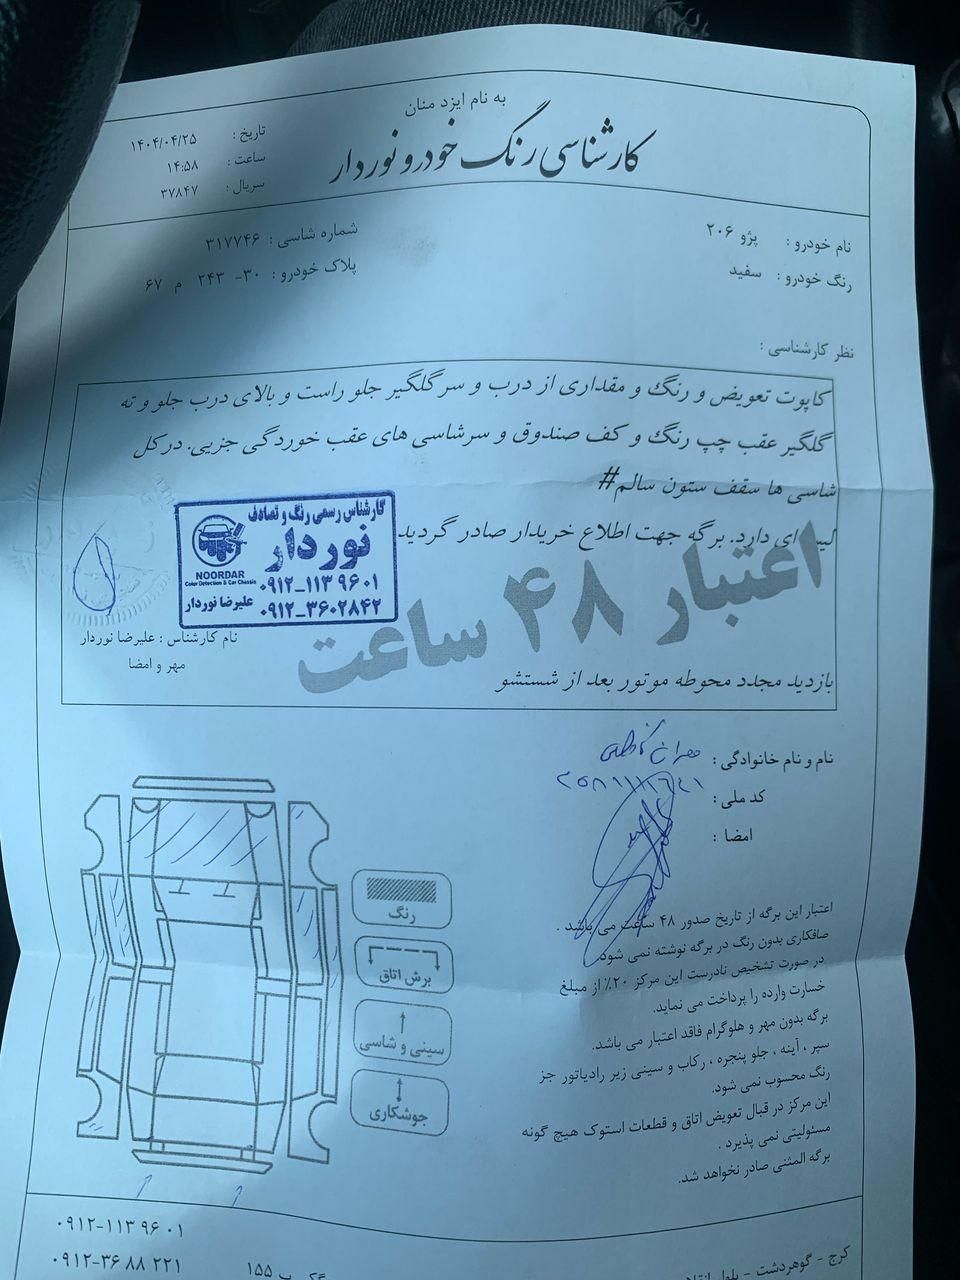 به نام ایزد منان
کارشناسی رنگ خودرو نوردار
تاریخ : ۱۴۰۴/۰۴/۲۵
ساعت : ۱۴:۵۸
سریال : ۳۷۸۴۷
نام خودرو : پژو ۲۰۶
شماره شاسی : ۳۱۷۷۴۶
رنگ خودرو : سفید
پلاک خودرو : ۳۰- ۲۴۳ م ۶۷
نظر کارشناسی :
کاپوت تعویض و رنگ و مقداری از درب و سر گلگیر جلو راست و بالای درب جلو و ته
گلگیر عقب چپ رنگ و کف صندوق و سرشاسی های عقب خوردگی جزیی. درکل
شاسی ها سقف ستون سالم#
ای دارد. برگه جهت اطلاع خریدار صادر گردید
اعتبار ۴۸ ساعت
بازدید مجدد محوطه موتور بعد از شستشو
کارشناس رسمی رنگ و تصادف
نوردار
NOORDAR
Color Detection & Car Chassis
۰۹۱۲-۱۱۳۹۶۰۱
علیرضا نوردار ۰۹۱۲-۳۶۰۲۸۴۲
نام کارشناس : علیرضا نوردار
مهر و امضا
نام و نام خانوادگی :
کد ملی :
امضا :
رنگ
برش اتاق
سینی و شاسی
جوشکاری
اعتبار این برگه از تاریخ صدور ۴۸ ساعت می باشد .
صافکاری بدون رنگ در برگه نوشته نمی شود.
در صورت تشخیص نادرست این مرکز ۲۰٪ از مبلغ
خسارت وارده را پرداخت می نماید.
برگه بدون مهر و هلوگرام فاقد اعتبار می باشد.
سپر ، آینه ، جلو پنجره ، رکاب و سینی زیر رادیاتور جز
رنگ محسوب نمی شود.
این مرکز در قبال تعویض اتاق و قطعات استوک هیچ گونه
مسئولیتی نمی پذیرد .
برگه المثنی صادر نخواهد شد.
۰۹۱۲-۱۱۳ ۹۶ ۰۱
۰۹۱۲-۳۶ ۸۸ ۲۲۱
کرج - گوهردشت - بلوار
۱۵۵